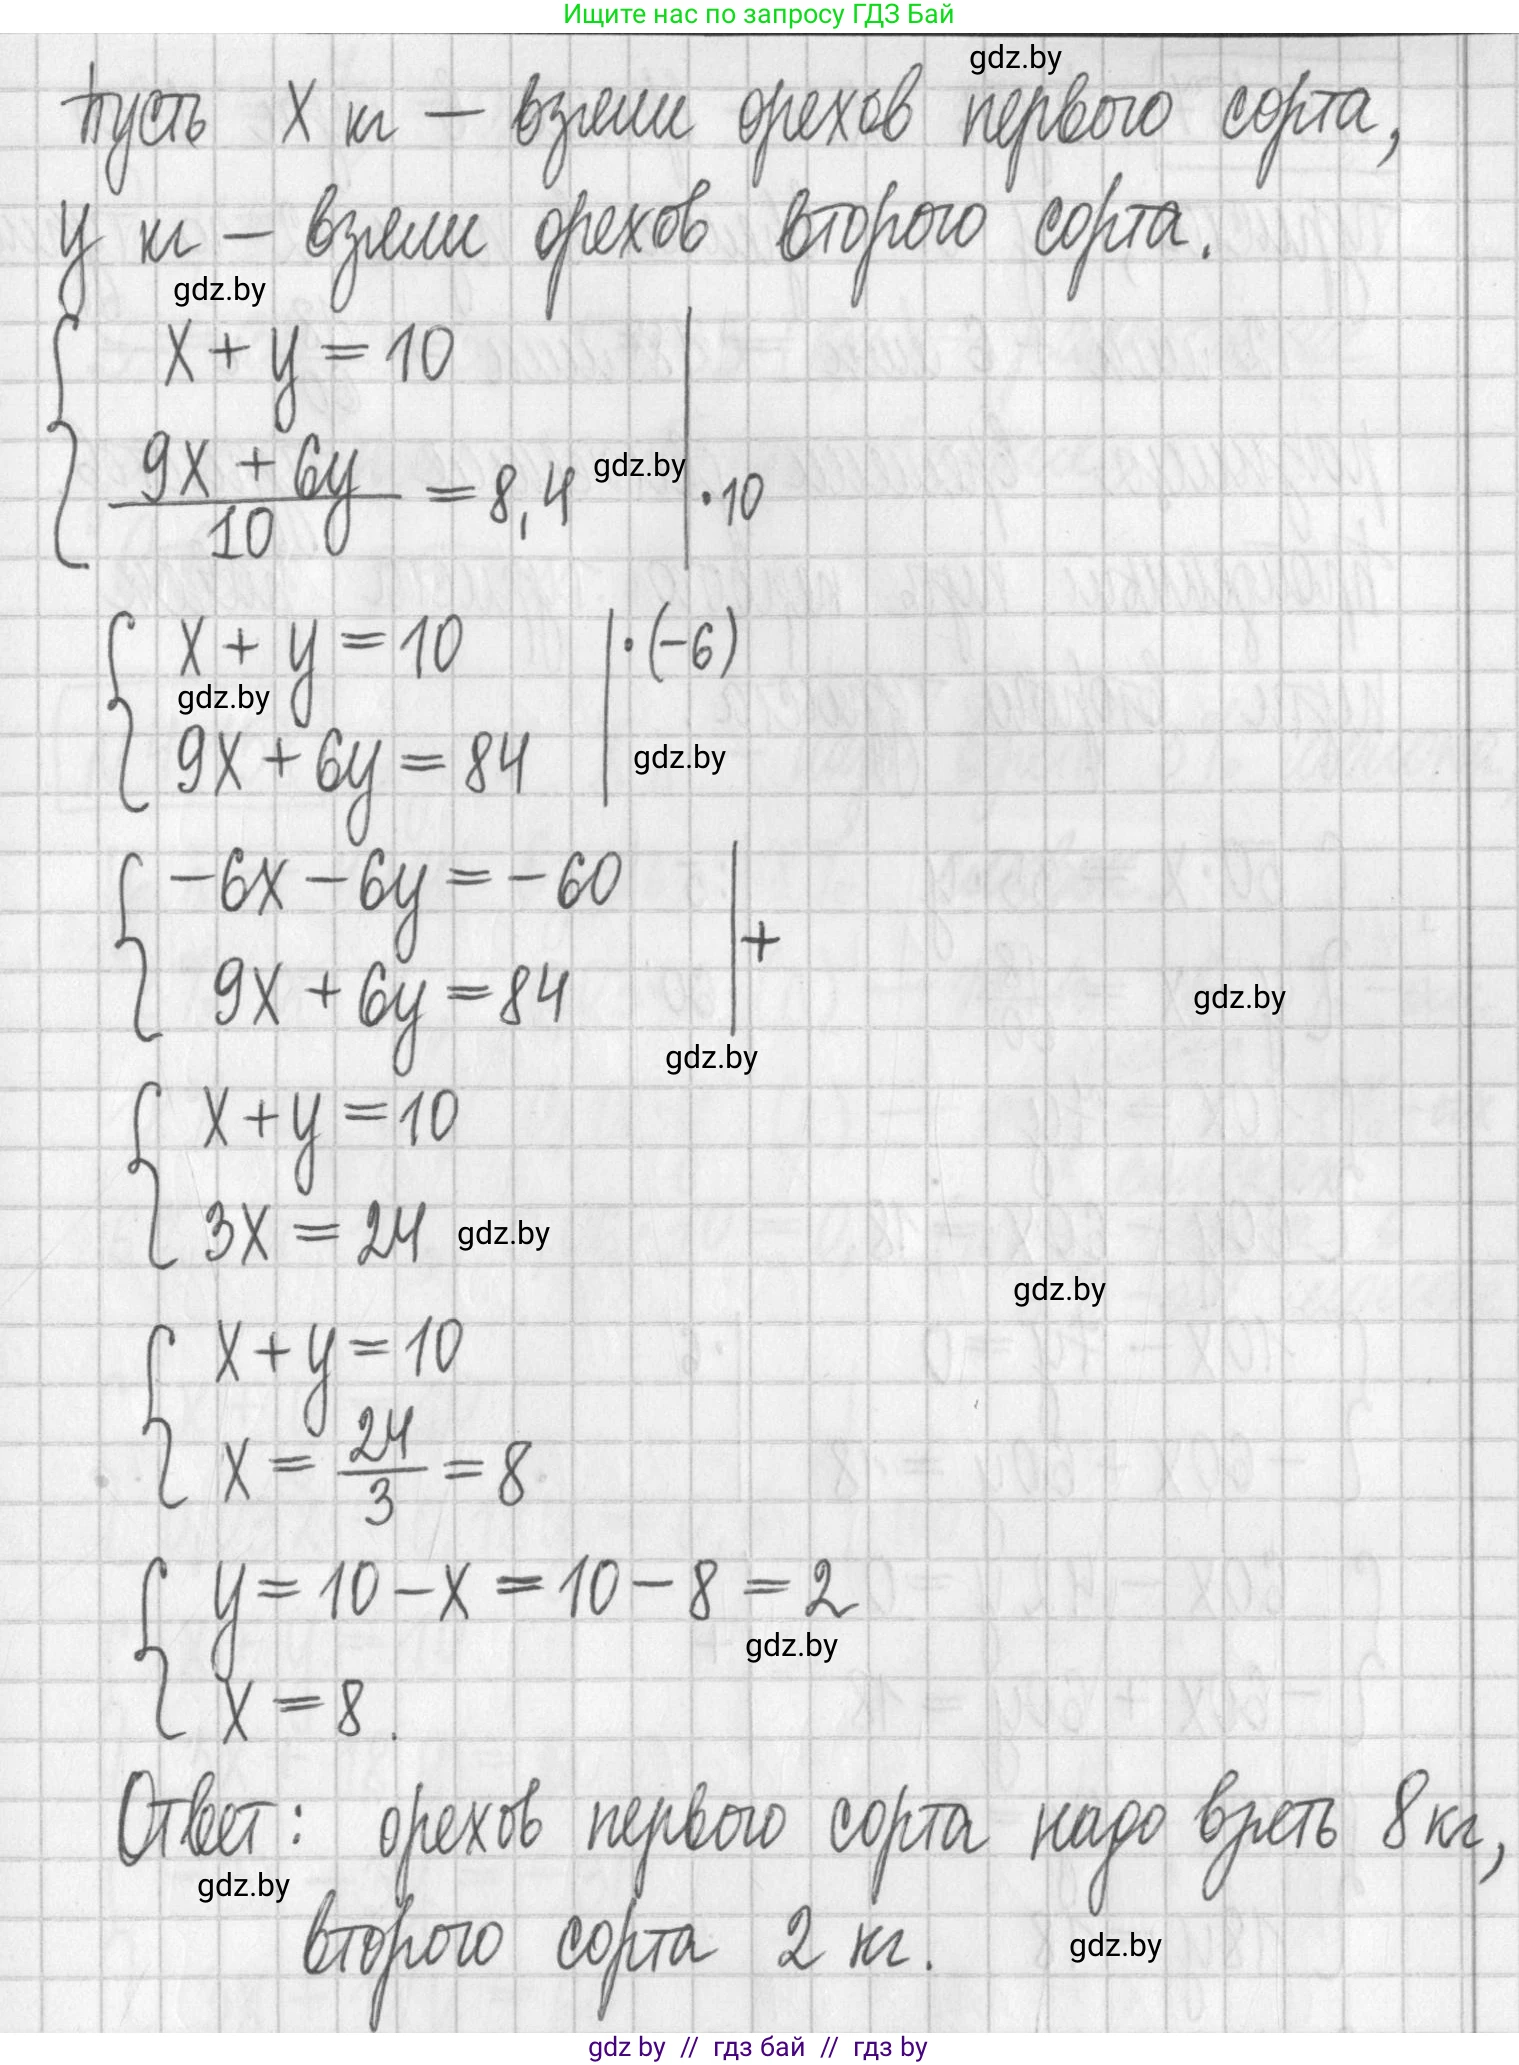 Ищите нас по запросу ГДЗ Бай
gdz.by
Пусть x кг — взяли орехов первого сорта,
y кг — взяли орехов второго сорта.
gdz.by
x + y = 10
9x + 6y
gdz.by
10
= 8,4
·10
x + y = 10 | ·(-6)
gdz.by
9x + 6y = 84
gdz.by
-6x - 6y = -60
+
9x + 6y = 84
gdz.by
gdz.by
x + y = 10
3x = 24
gdz.by
gdz.by
x + y = 10
x = 24/3 = 8
y = 10 - x = 10 - 8 = 2
gdz.by
x = 8.
Ответ: орехов первого сорта надо взять 8 кг,
gdz.by
второго сорта 2 кг.
gdz.by
gdz by // гдз бай // гдз by